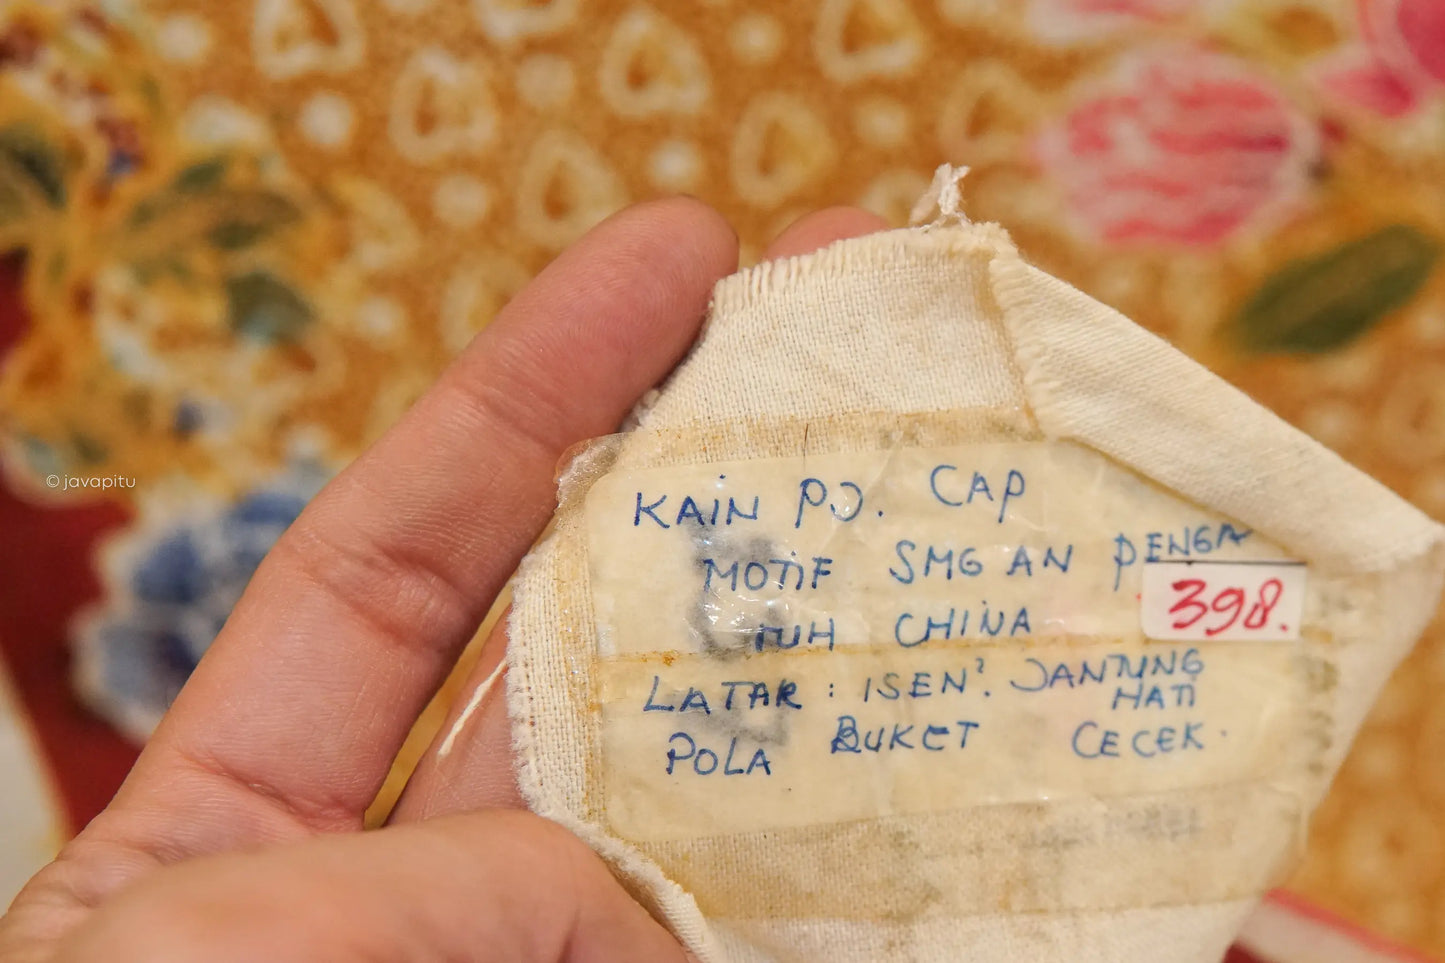 © javapitu
KAIN PJ. CAP
MOTIF SMG AN PENGA
RUH CHINA
398.
LATAR : ISEN². JANTUNG
HATI
POLA BUKET CECEK.